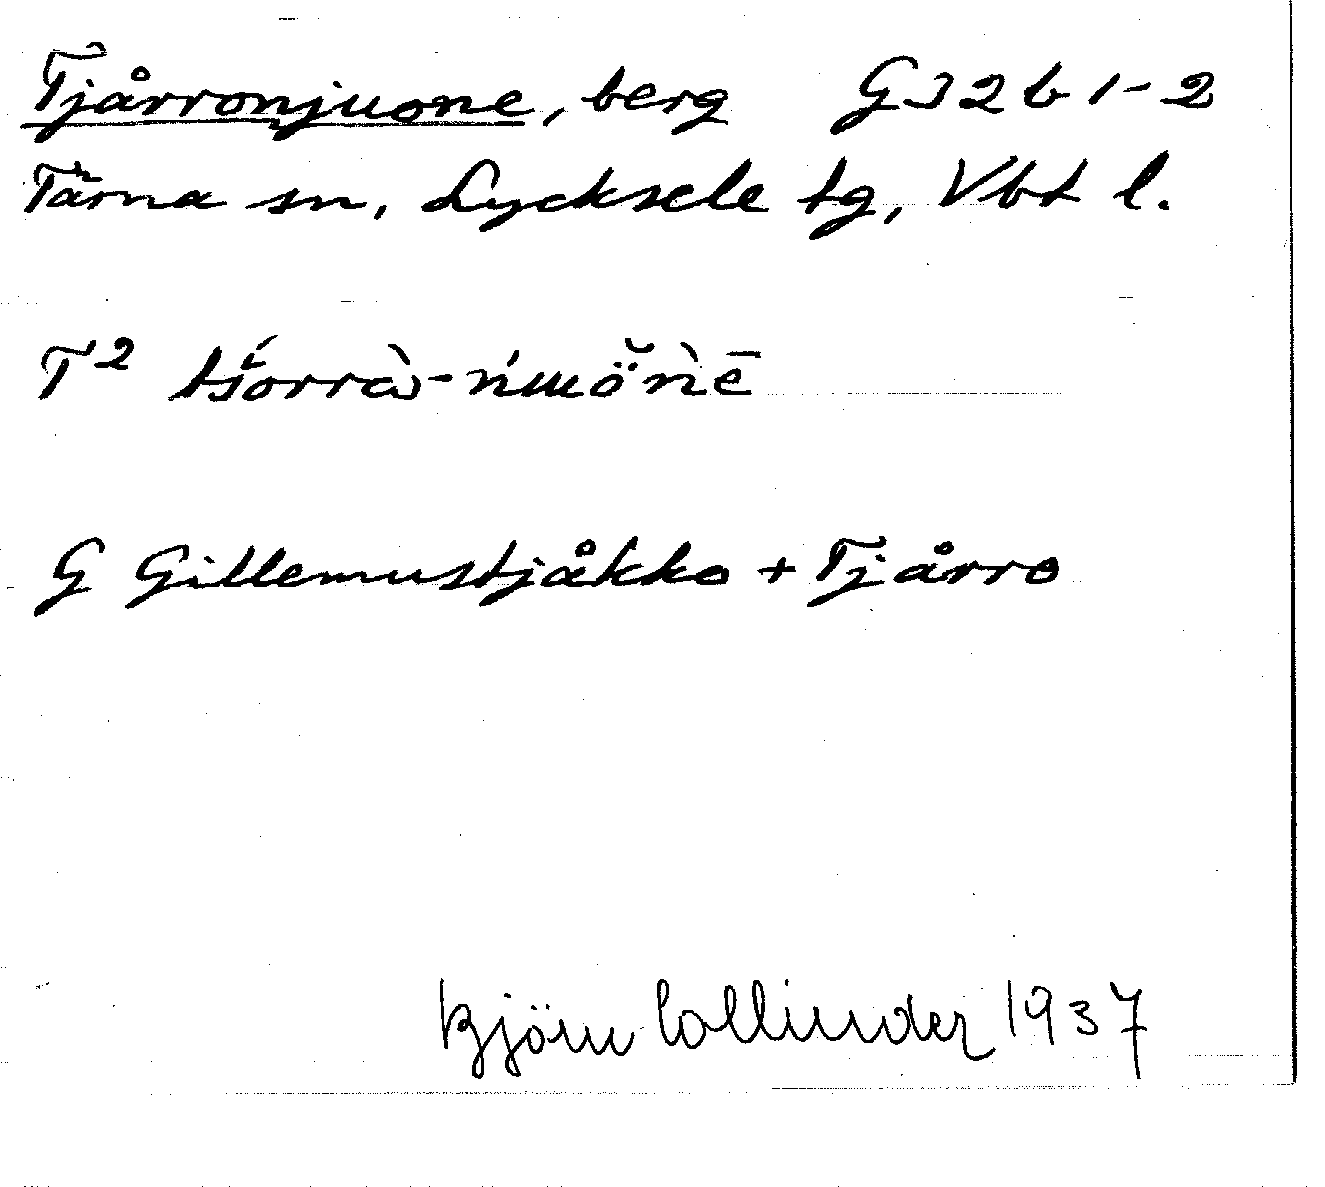 Tjårronjuone, berg G32b1-2
Tärna sn, Lycksele tg, Vbt l.
T²
G Gillemustjåkko + Tjårro
Björn Collinder 1937